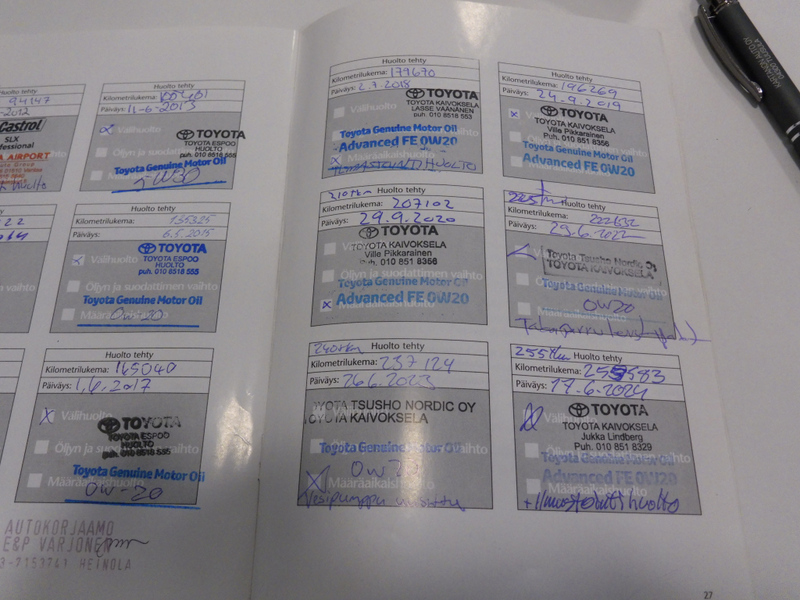 94147
-2012
Castrol
SLX
fessional
A AIRPORT
Huolto tehty
Kilometrilukema: 105401
Päiväys: 11-6-2013
x Välihuolto
TOYOTA
TOYOTA ESPOO
HUOLTO
puh. 010 8518 553
Öljyn ja suodattimen
Toyota Genuine Motor Oil
Huolto tehty
Kilometrilukema: 135325
Päiväys: 6.5.2015
x Välihuolto
TOYOTA
TOYOTA ESPOO
HUOLTO
puh. 010 8518 553
Öljyn ja suodattimen vaihto
Toyota Genuine Motor Oil
0w-20
Huolto tehty
Kilometrilukema: 165040
Päiväys: 1.6.2017
x Välihuolto
TOYOTA
TOYOTA ESPOO
HUOLTO
puh. 010 8518 553
Öljyn ja suodattimen vaihto
Toyota Genuine Motor Oil
Määräaikaishuolto
0w-20
AUTOKORJAAMO
E&P VARJONEN
HEINOLA
Huolto tehty
Kilometrilukema: 179670
Päiväys: 2.7.2018
Välihuolto
TOYOTA
TOYOTA KAIVOKSELA
LASSE VÄÄNÄNEN
puh. 010 8518
Toyota Genuine Motor Oil
Advanced FE 0W20
x Määräaikaishuolto
Huolto tehty
Kilometrilukema: 196269
Päiväys: 24.9.2019
x
TOYOTA
TOYOTA KAIVOKSELA
Ville Pikkarainen
Puh. 010 851 8366
Toyota Genuine Motor Oil
Advanced FE 0W20
210tkm Huolto tehty
Kilometrilukema: 207102
Päiväys: 29.9.2020
TOYOTA
TOYOTA KAIVOKSELA
Ville Pikkarainen
Puh. 010 851 8366
Öljyn ja suodattimen vaihto
Toyota Genuine Motor Oil
x Advanced FE 0W20
Huolto tehty
Kilometrilukema: 222632
Päiväys: 29.6.2022
Toyota Tsusho Nordic Oy
TOYOTA KAIVOKSELA
Öljyn ja suodattimen vaihto
Toyota Genuine Motor Oil
0W20
240tkm Huolto tehty
Kilometrilukema: 237124
Päiväys: 26.6.2023
TOYOTA TSUSHO NORDIC OY
TOYOTA KAIVOKSELA
Öljyn ja suodattimen vaihto
Toyota Genuine Motor Oil
0w20
x Määräaikaishuolto
Vesipumppu vaihdettu
255tkm Huolto tehty
Kilometrilukema: 255583
Päiväys: 17.6.2024
x Välihuolto
TOYOTA
TOYOTA KAIVOKSELA
Jukka Lindberg
Puh. 010 851 8329
Öljyn ja suodattimen vaihto
Toyota Genuine Motor Oil
Advanced FE 0W20
+ Ilmastointihuolto
27